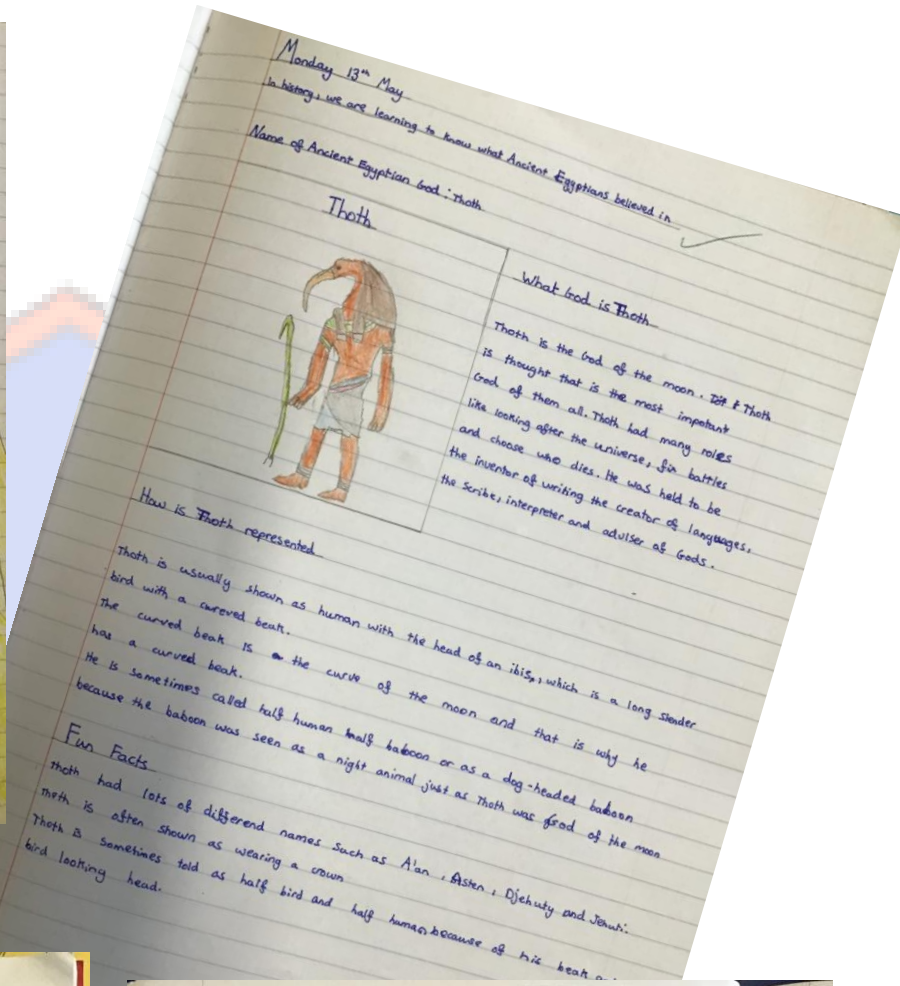 Monday 13th May
In history, we are learning to know what Ancient Egyptians believed in
Name of Ancient Egyptian God : Thoth
Thoth
What God is Thoth
Thoth is the God of the moon. Thoth
is thought that is the most impotant
God of them all. Thoth had many roles
like looking after the universe, fix battles
and choose who dies. He was held to be
the inventor of writing the creator of languages,
the Scribe, interpreter and adviser of Gods.
How is Thoth represented
Thoth is usually shown as human with the head of an ibis, which is a long slender
bird with a cureved beak.
The curved beak is the curve of the moon and that is why he
has a curved beak.
He is sometimes called half human half baboon or as a dog-headed baboon
because the baboon was seen as a night animal just as Thoth was God of the moon
Fun Facts
Thoth had lots of differend names such as A'an, Asten, Djehuty and Jehuti.
Thoth is often shown as wearing a crown
Thoth is sometimes told as half bird and half human because of his beak
bird looking head.